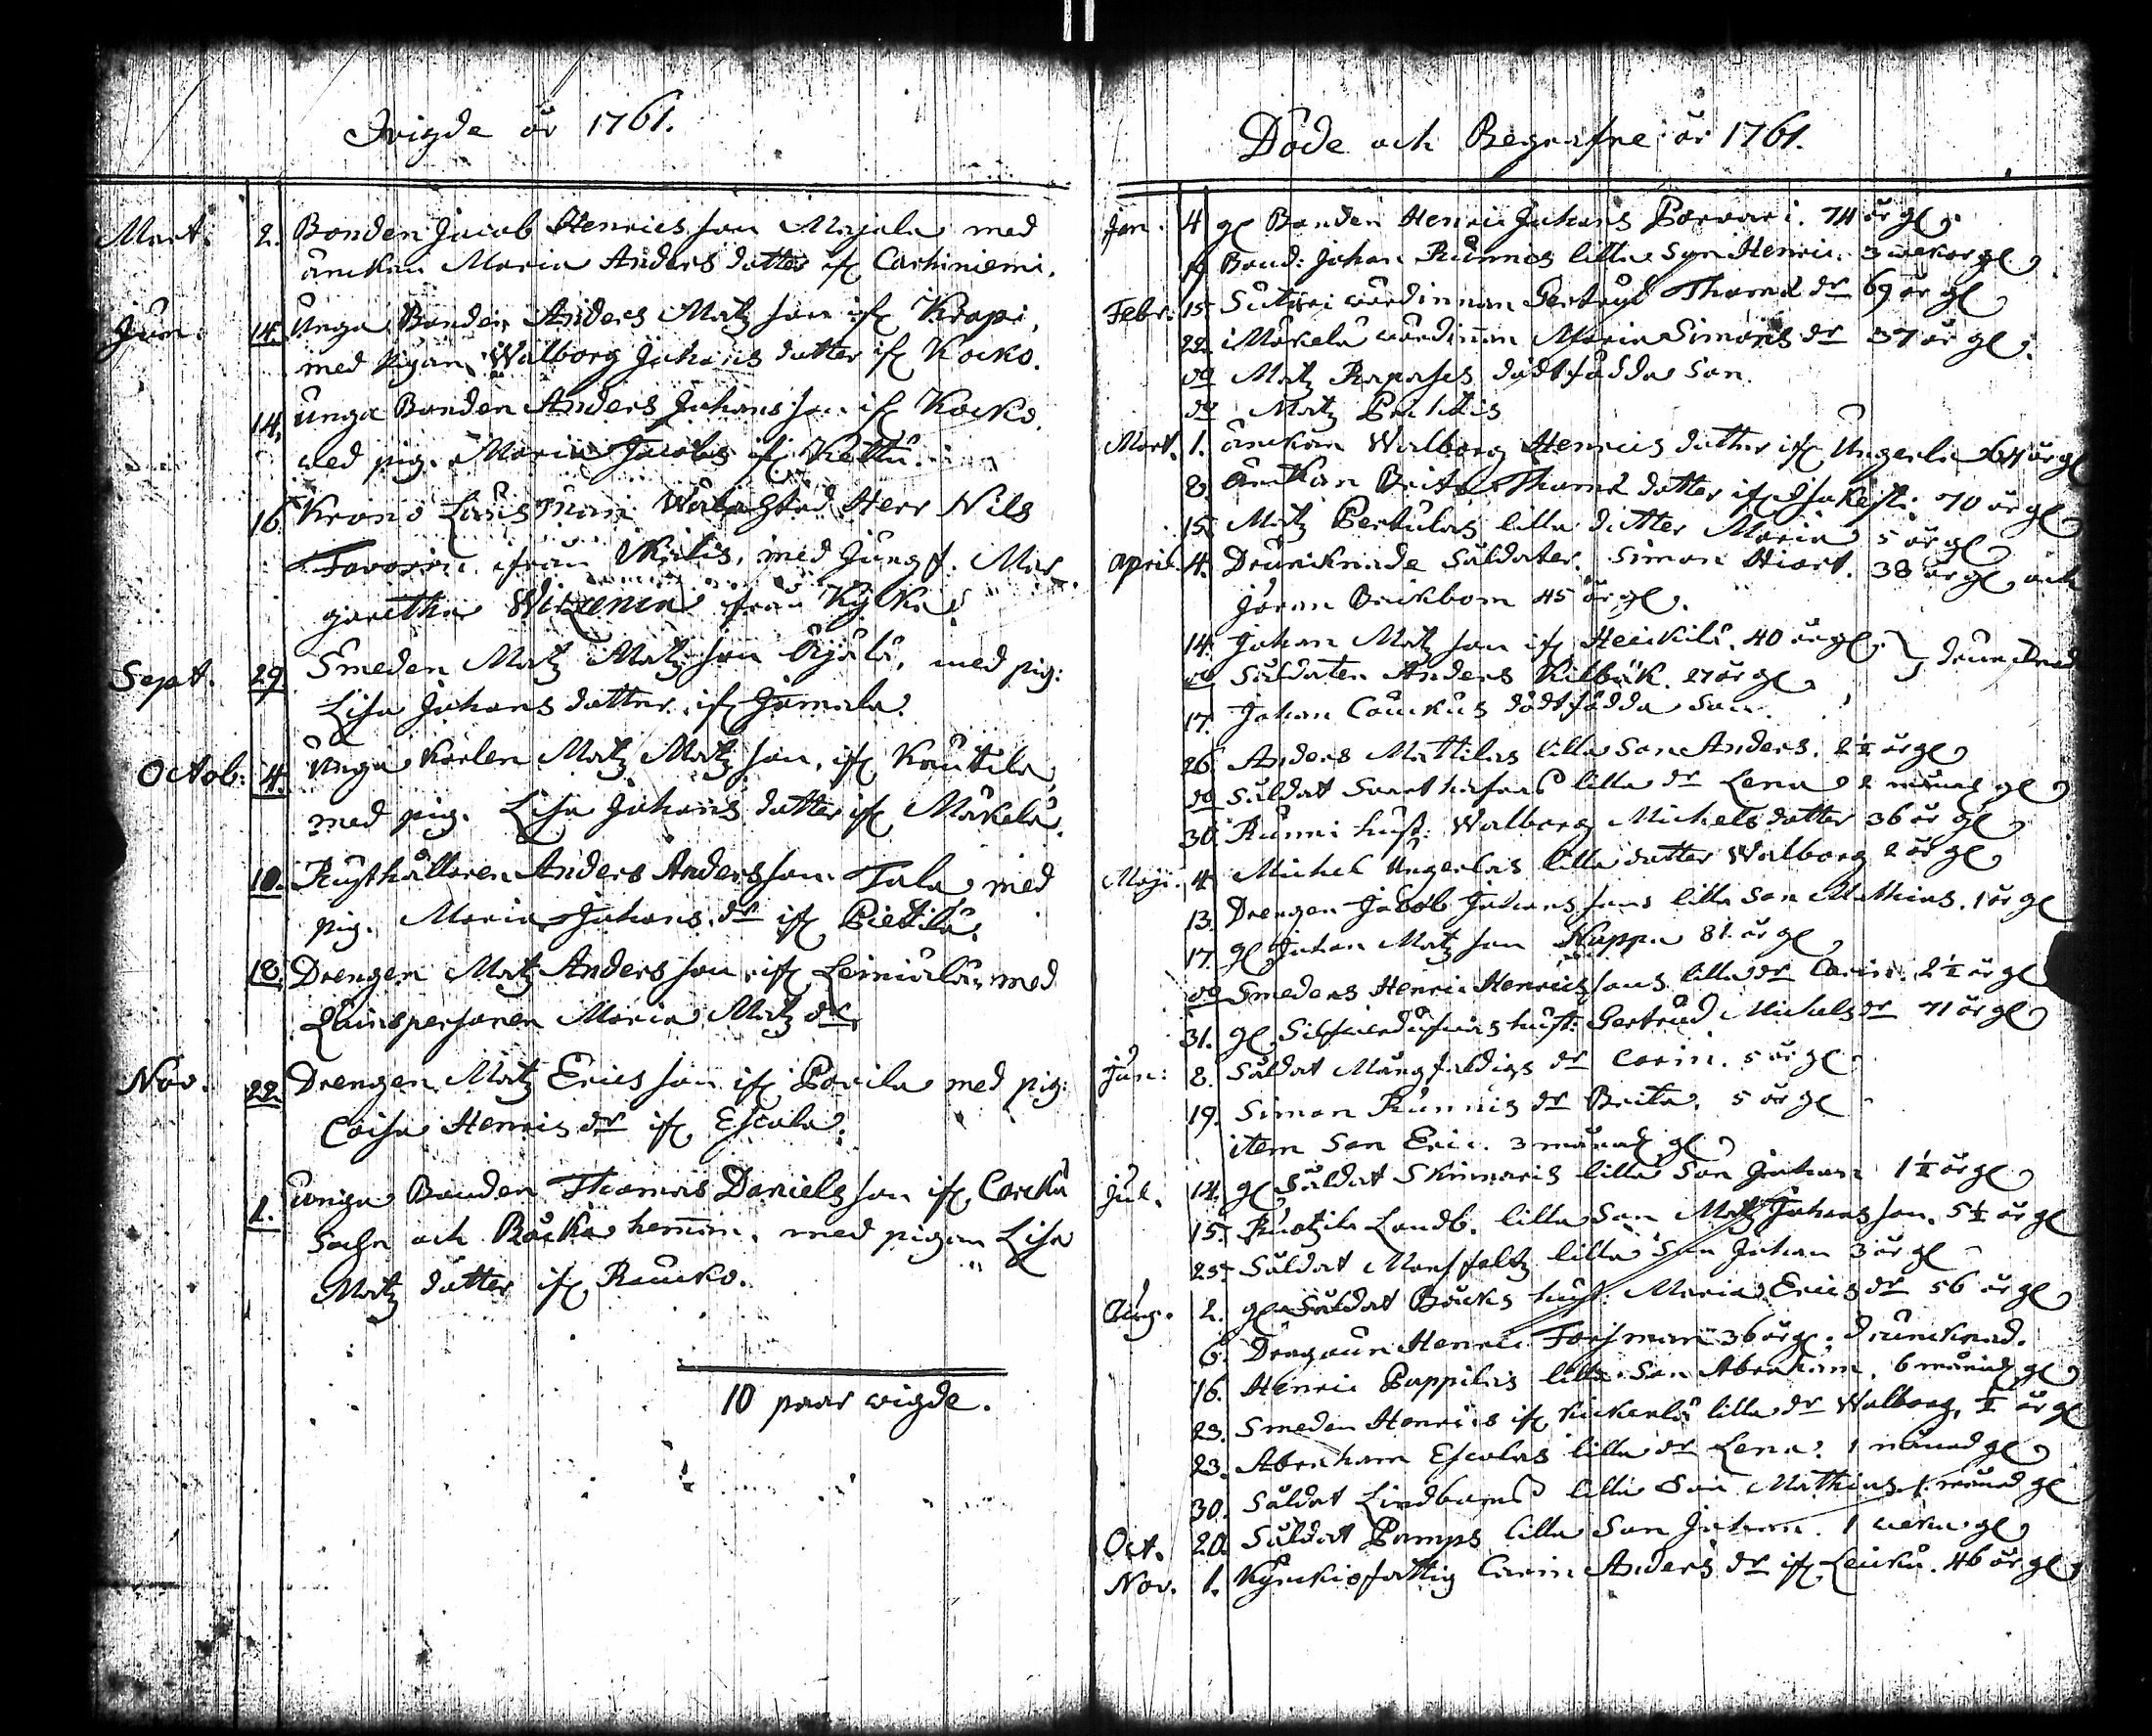 Iwigde år 1761.
Mart. 2. Bonden Jacob Henrics son Majala med
änckan Maria Anders dotter if Carhiniemi.
Jun. 14. Unga Bonden Anders Matz son if Krapi,
med pigan Walborg Johans dotter if Kocko.
14. Unga Bonden Anders Johans son if Kocko.
med pig. Maria Jacobs if Kettu.
16. Krono Länsman Herr Nils
Favorin ifrån med Jungf. Mar
garetha från Kylke.
Sept. 29. Smeden Matz Matz son Äijälä, med pig:
Lisa Johans dotter if Jamala.
Octob: 4. Unga Karlen Matz Matz son, if Kauttila
med pig. Lisa Johans dotter if Mäkelä.
10. Rusthållaren Anders Anders son Tala med
pig. Maria Johans dr if Pietilä.
18. Drengen Matz Anders son if Leinialä, med
Qwinspersonen Maria Matz dr
Nov. 22. Drengen Matz Erics son if Pavila med pig:
Caisa Henrics dr if Escola.
1. unga Bonden Thomas Daniels son if
Sochn och hemm. med pigan Lisa
Matz dotter if Raucko.
10 paar wigde.
Döde och Begrafne år 1761.
Jan. 4 gl Bonden Henric Johans Porvari. 74 år gl
19 Bond: Johan Runnis lilla Son Henric. 3 wekor gl
Febr. 15. Suttari wärdinnan Gertrud Thoms dr 69 år gl
22. i Mäkelä wärdinnan Maria Simons dr 37 år gl.
do Matz dödfödda Son.
do Matz
Mart. 1. änckan Walborg Henrics dotter if Ungerla 64 år gl
8. änckan Brita Thoms dotter if 70 år gl
15. Matz Pertulas lilla dotter Maria 5 år gl
April. 4. Drunknade Soldater. Simon Hiort. 38 år gl och
Jöran Brickbom 45 år gl.
14. Johan Matz son if Heickilä. 40 år gl. } drunknad
do Soldaten Anders Kilbäk. 27 år gl
17. Johan Couckus dödtfödda Son.
26. Anders Mattilas lilla Son Anders. 2½ år gl
do Soldat lilla dr Lena 2 månad gl
30. Runni hust: Walborg Michels dotter 36 år gl
Maji. 4. Michel Ungerlas lilla dotter Walborg 2 år gl
13. Drengen Jacob Johans sons lilla Son Mathias. 1 år gl
17. gl Johan Matz son Nuppu 81 år gl
do Smedens Henric Henrics sons lilla dr Carin. 2½ år gl
31. gl hust: Gertrud Michels dr 71 år gl
Jun: 8. Soldat Mångfaldigs dr Carin. 5 år gl
19. Simon Runnis dr Brita. 5 år gl
item Son Eric. 3 månad gl
Jul. 14. gl Soldat Skinnaris lilla Son Johan 1½ år gl
15. Landb. lilla Son Matz Johans son. 5½ år gl
25. Soldat lilla Son Johan 3 år gl
Aug. 2. gl Soldat Bocks hust: Maria Erics dr 56 år gl
6. Dragoun Henric Forsman 36 år gl. drunknad.
16. Henric Pappilas lilla Son Abraham. 6 månad gl
23. Smeden Henrics if lilla dr Walborg. ½ år gl
23. Abraham Escolas lilla dr Lena. 1 månad gl
30. Soldat Lindboms lilla Son Mathias 1 månad gl
Oct. 20 Soldat Pamps lilla Son Johan. 1 weka gl
Nov. 1. Kyrkiofattig Carin Anders dr if 46 år gl